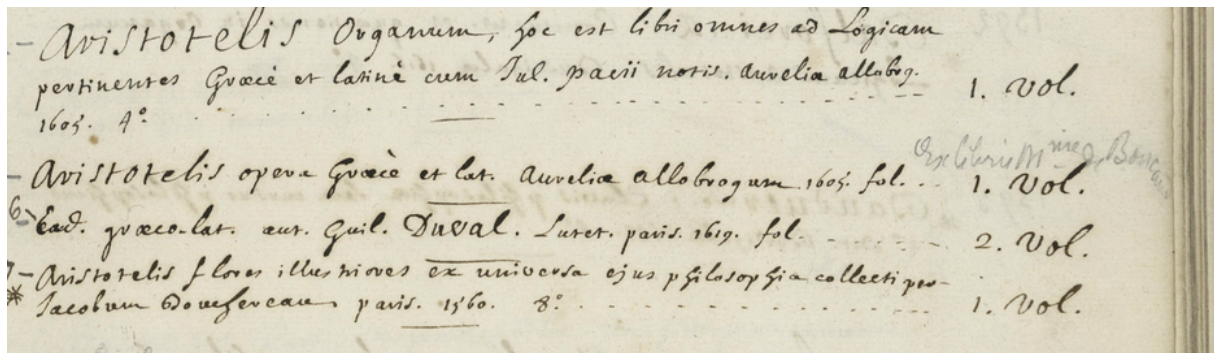 Aristotelis Organum, hoc est libri omnes ad Logicam
pertinentes Græcè et latinè cum Jul. pacii notis. aurelia allobrog.
1605. 4º. 1. vol.
Ex libris
Aristotelis opera Græcè et lat. Aureliæ allobrogum 1605. fol. 1. vol.
6 Ead. græco-lat. aut. Guil. Duval. Lutet. paris. 1619. fol. 2. vol.
Aristotelis flores illustriores ex universa ejus philosophia collecti per
* Jacobum paris. 1560. 8º 1. vol.